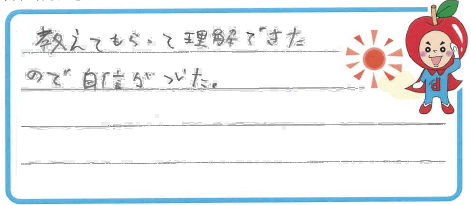 教えてもらって理解できた
ので自信がついた。